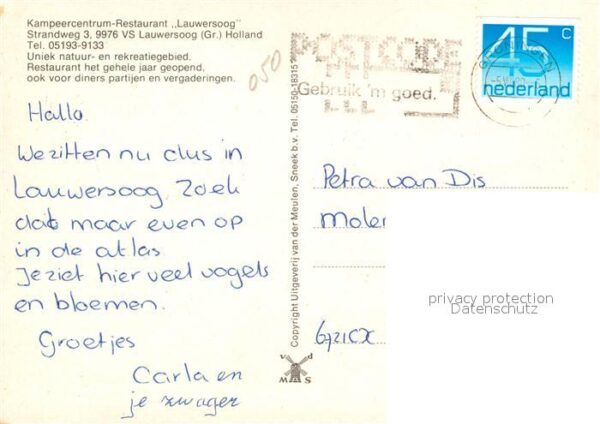 Kampeercentrum-Restaurant „Lauwersoog"
Strandweg 3, 9976 VS Lauwersoog (Gr.) Holland
Tel. 05193-9133
Uniek natuur- en rekreatiegebied.
Restaurant het gehele jaar geopend,
ook voor diners partijen en vergaderingen.
050
POSTCODE
Gebruik 'm goed.
45 c
nederland
Hallo
We zitten nu dus in
Lauwersoog. Zoek
dat maar even op
in de atlas.
Je ziet hier veel vogels
en bloemen.
Groetjes
Carla en
je zwager
Copyright Uitgeverij van der Meulen, Sneek b.v. Tel. 05150-16315
v d
M S
Petra van Dis
Molen
6721CX
privacy protection
Datenschutz